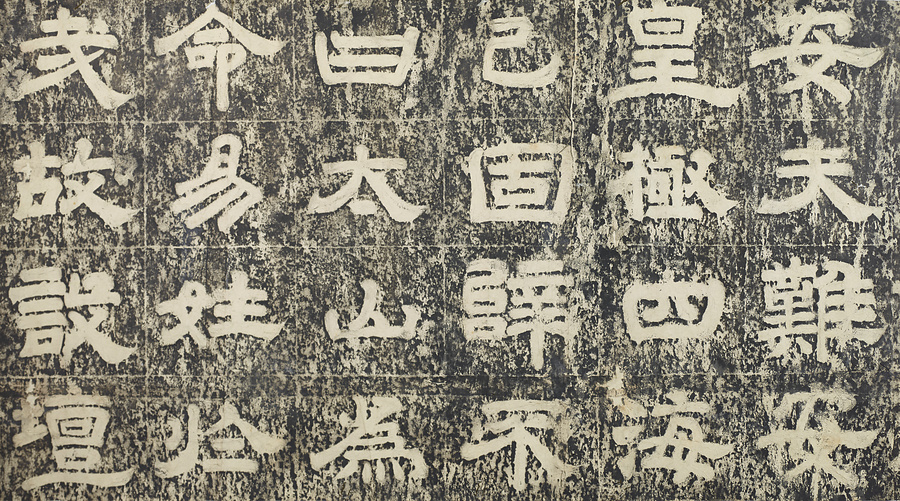 安夫難
皇極四海
己固辭不
曰太山為
命易姓於
㦲故設壇